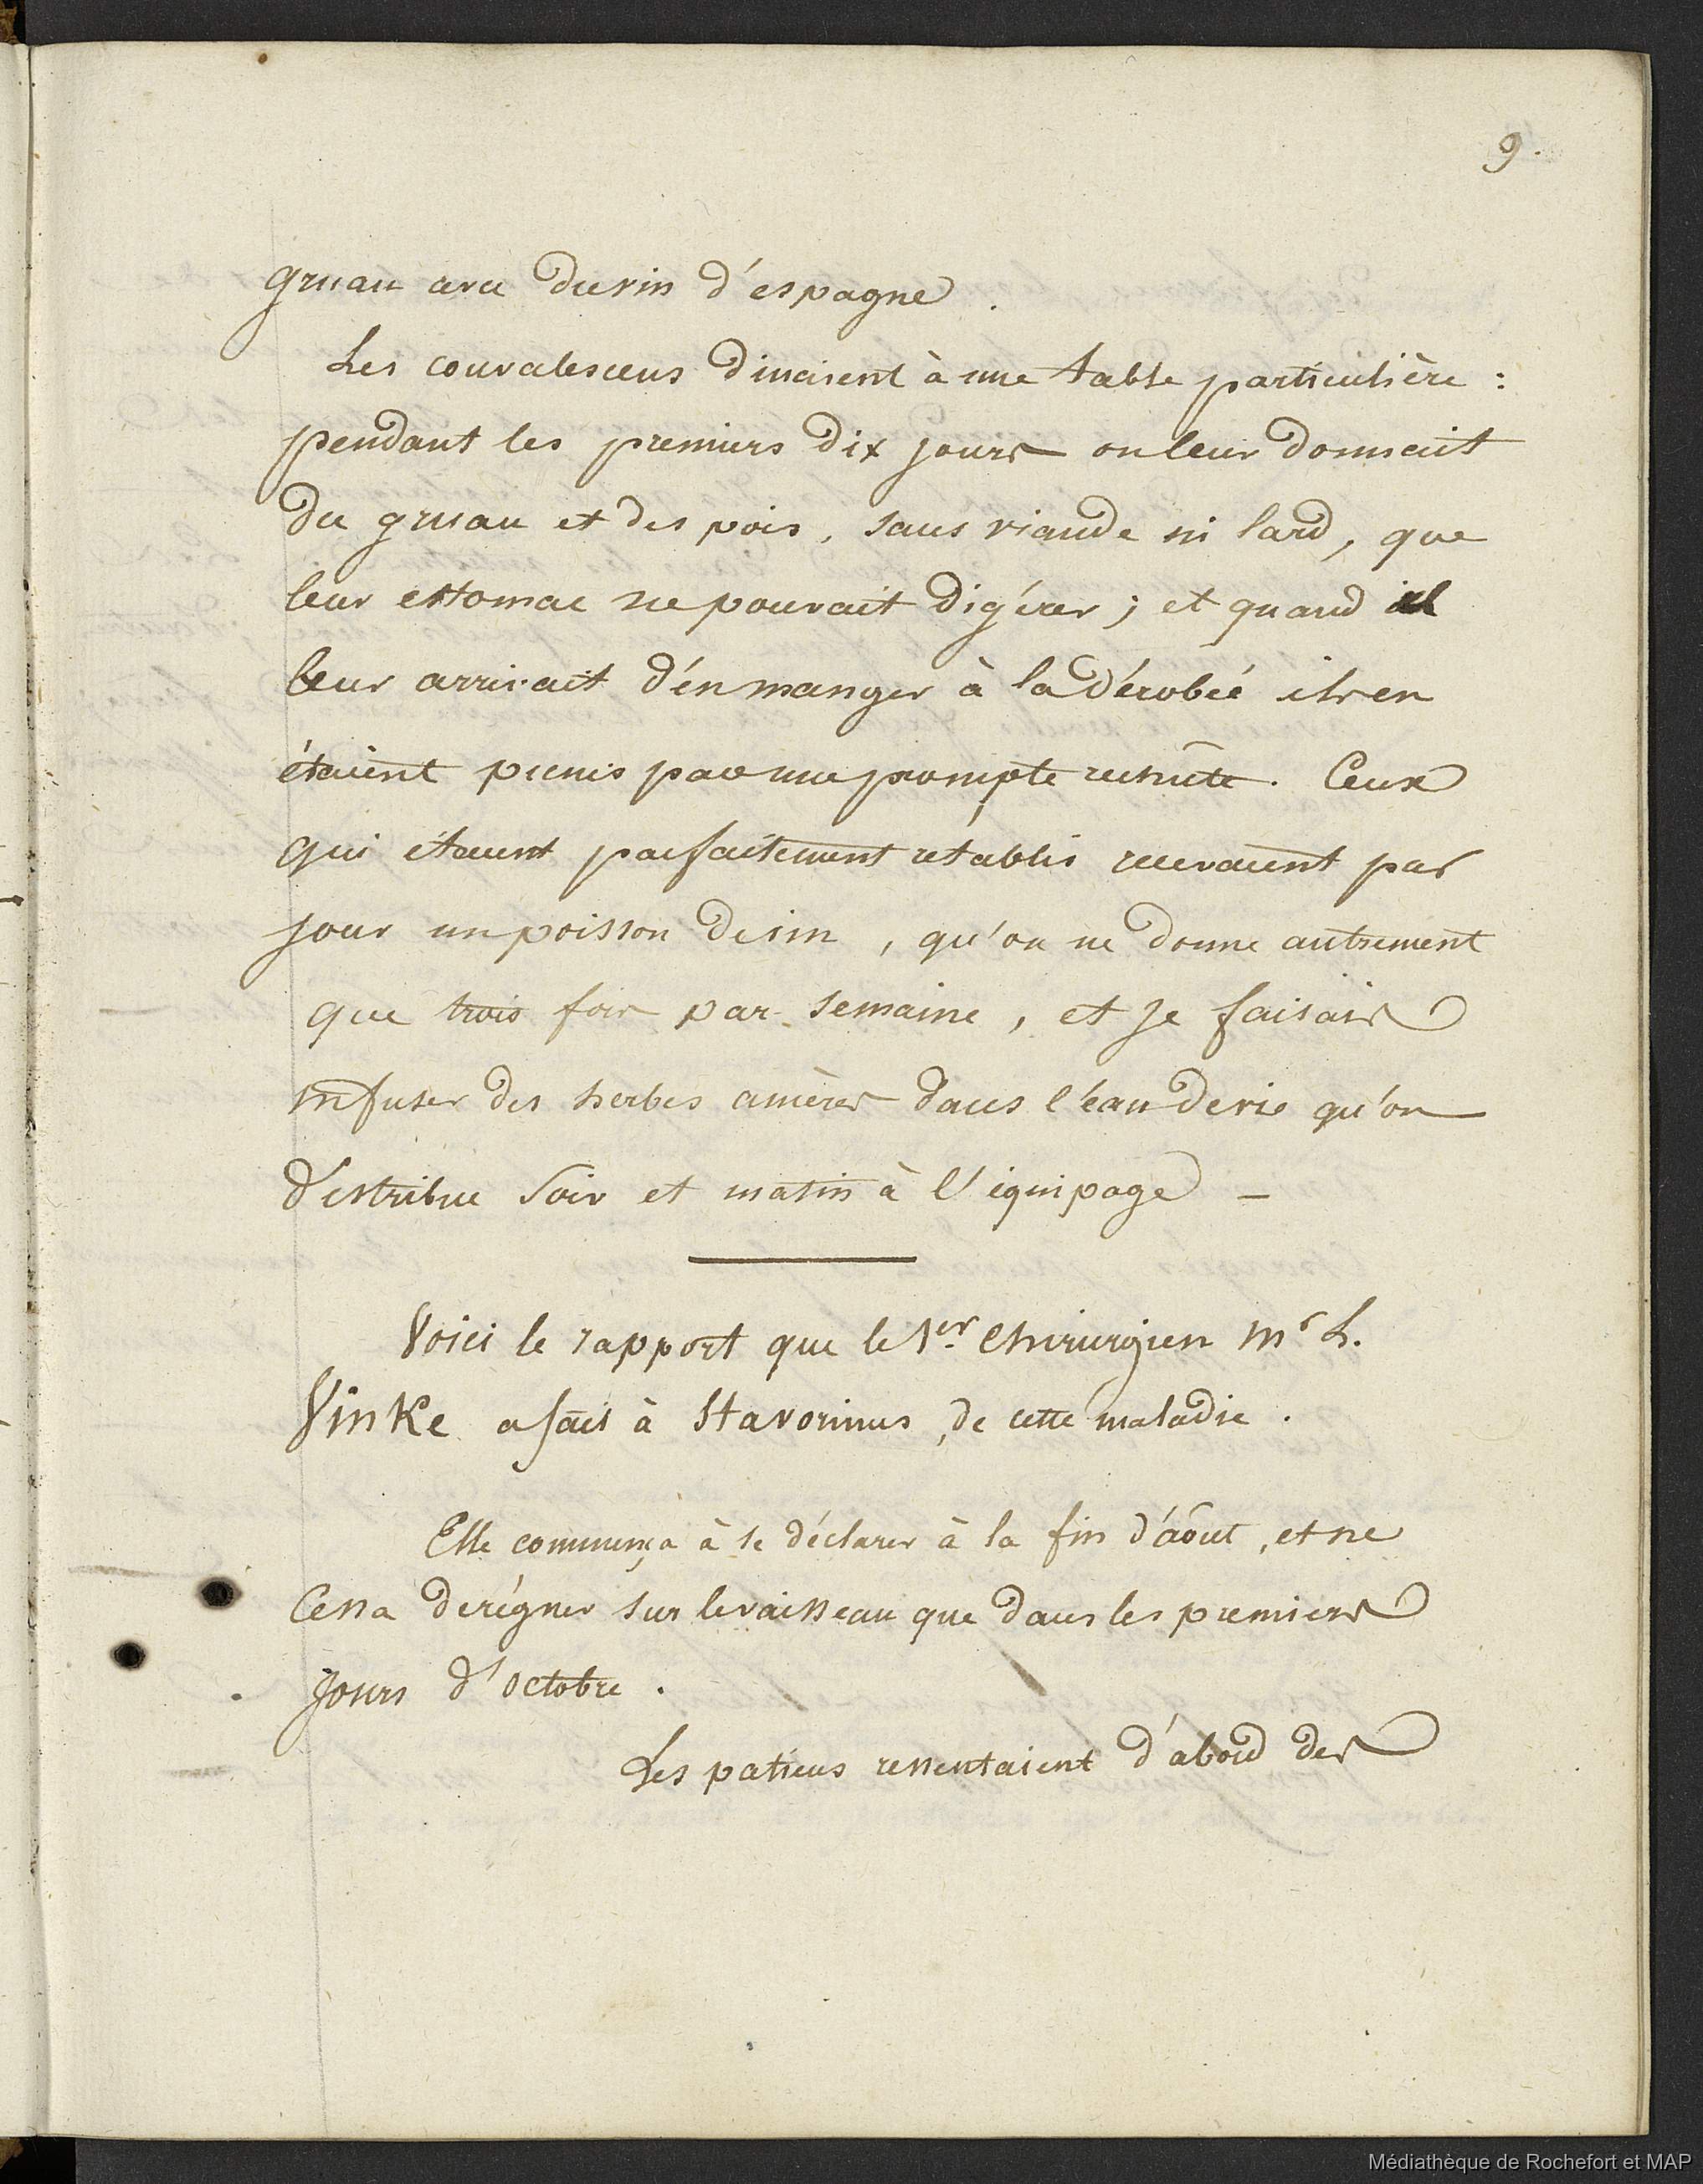 9.
gruau avec du vin d'espagne.
Les convalescens dinaient à une table particulière :
pendant les premiers dix jours on leur donnait
du gruau et des pois, sans viande ni lard, que
leur estomac ne pouvait digérer ; et quand il
leur arrivait d'en manger à la dérobée ils en
étaient punis par une prompte rechûte. Ceux
qui étaient parfaitement rétablis recevaient par
jour un poisson de vin, qu'on ne donne autrement
que trois fois par semaine, et je faisais
infuser des herbes amères dans l'eau de vie qu'on
distribue soir et matin à l'équipage —
Voici le rapport que le 1er Chirurgien Mr L.
Vinke a fait à Stavorinus, de cette maladie.
Elle commença à se déclarer à la fin d'août, et ne
Cessa de régner sur le vaisseau que dans les premiers
jours d'octobre.
Les patiens ressentaient d'abord des
Médiathèque de Rochefort et MAP